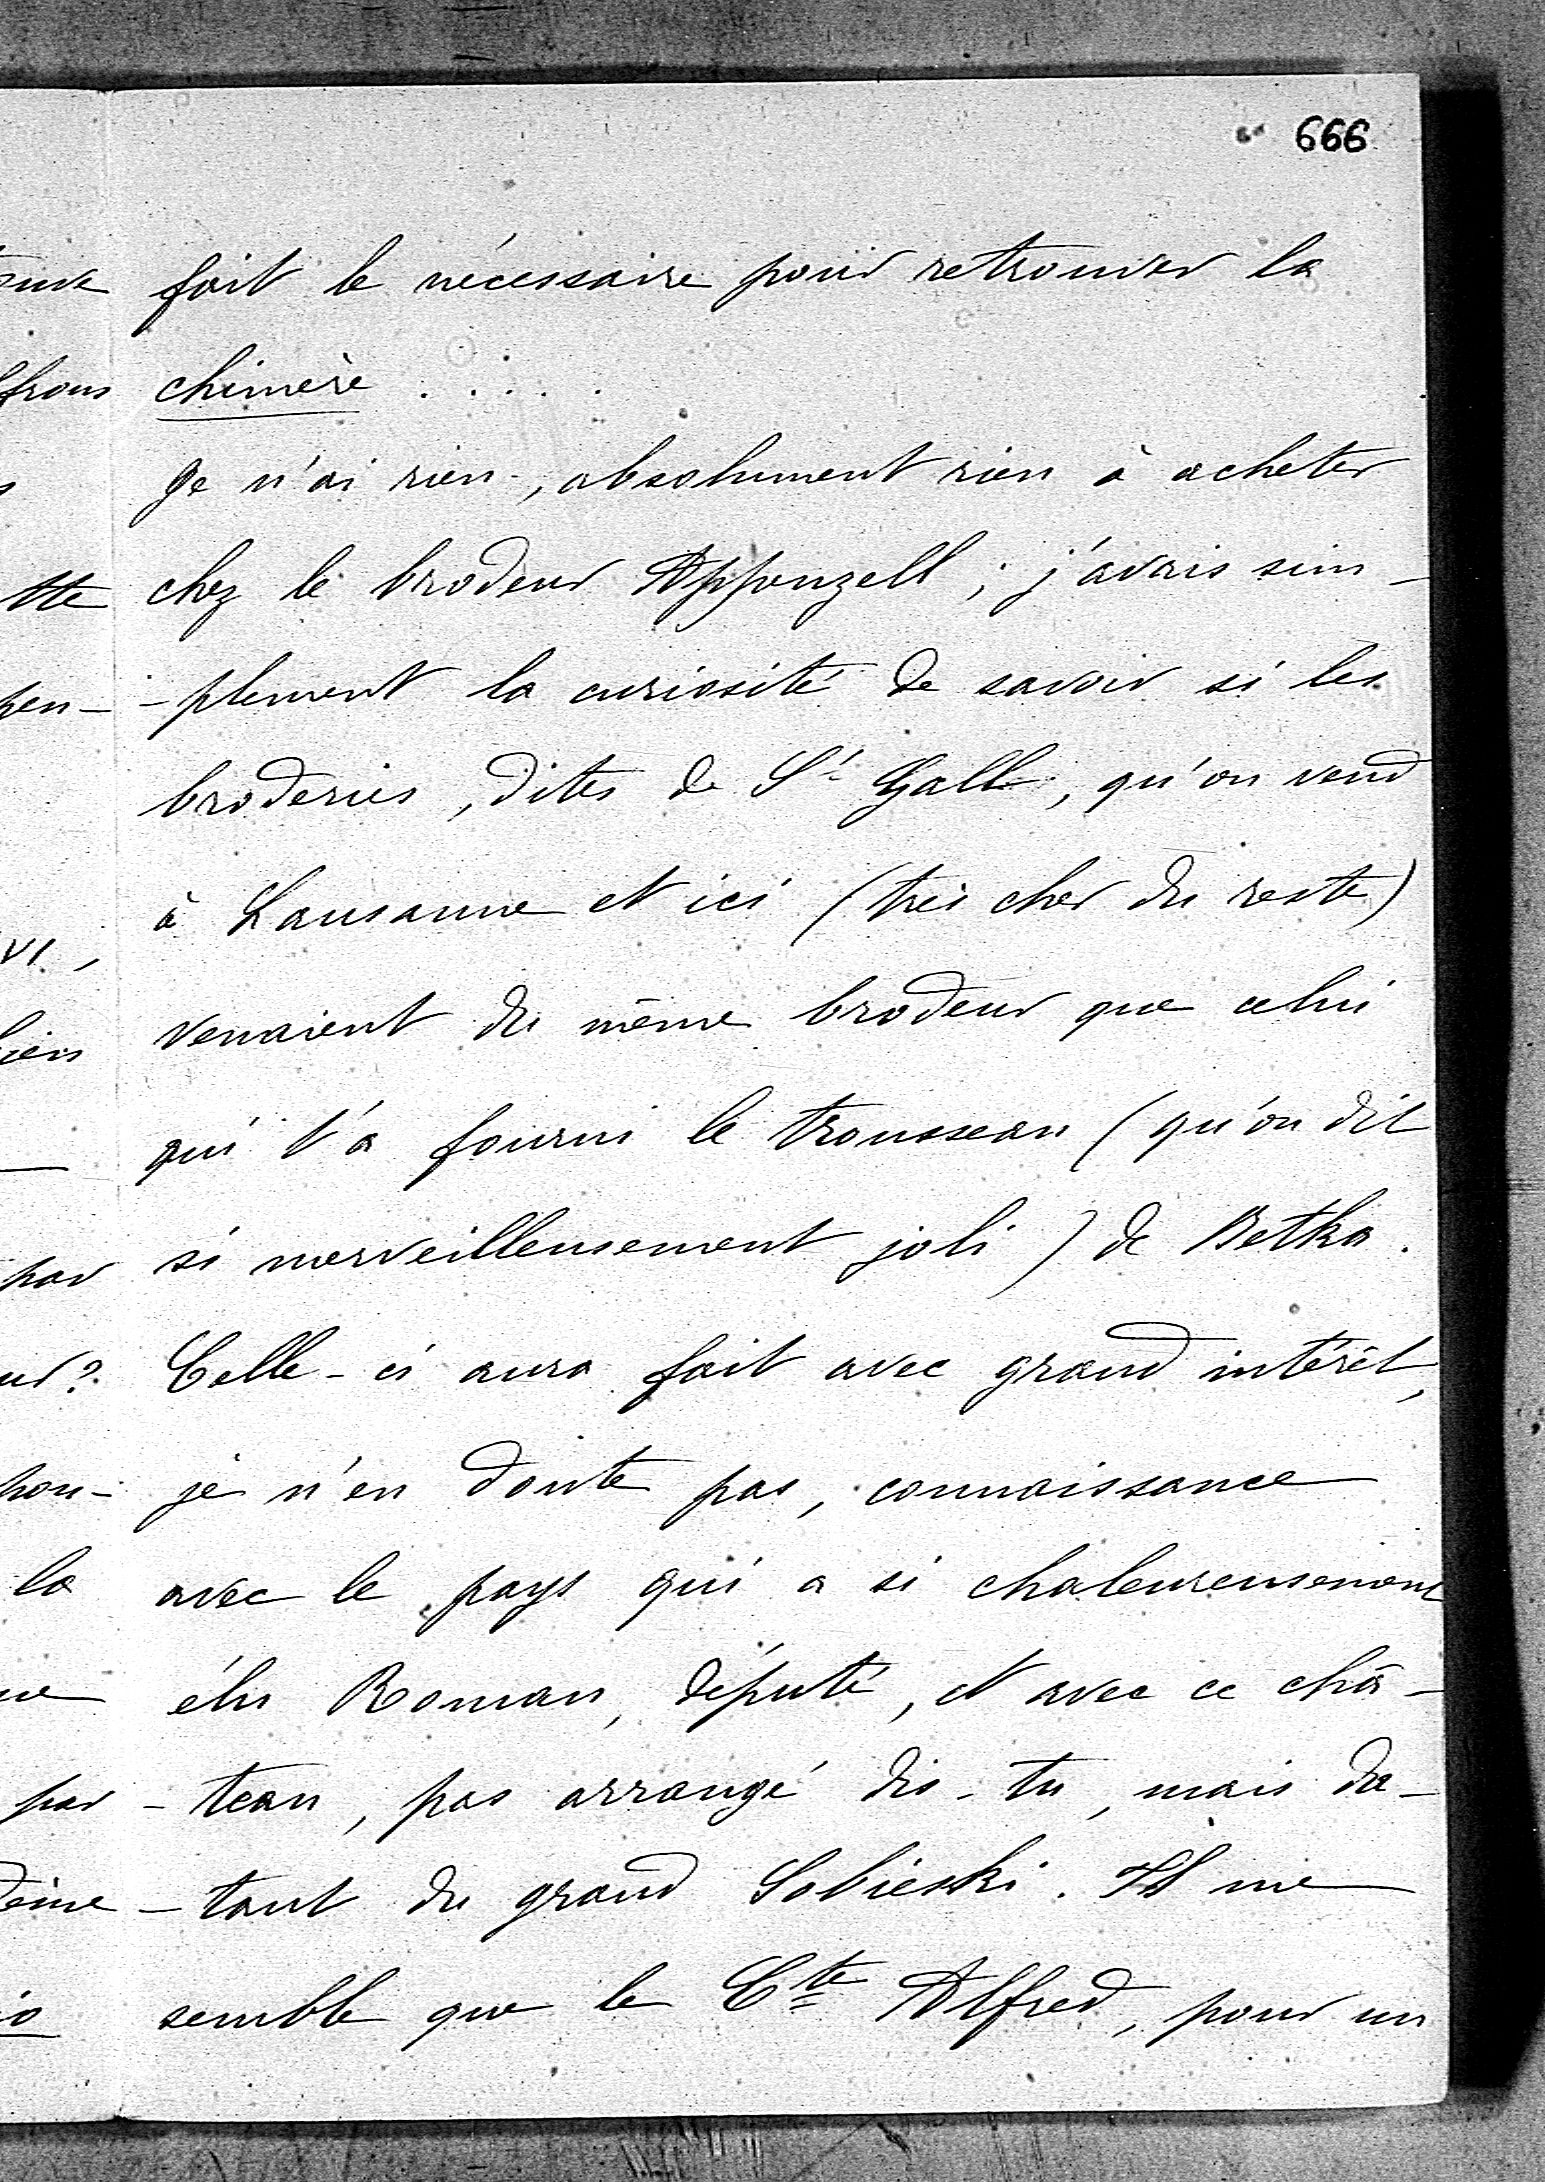 666
fait le nécessaire pour retrouver la
chimère . . . . .
Je n'ai rien, absolument rien à acheter
chez le brodeur Appenzell ; j'avais sim-
-plement la curiosité de savoir si les
broderies, dites de St Gall, qu'on vend
à Lausanne et ici (très cher du reste)
venaient du même brodeur que celui
qui t'a fourni le trousseau (qu'on dit
si merveilleusement joli) de Betka.
Celle-ci aura fait avec grand intérêt,
je n'en doute pas, connaissance
avec le pays qui a si chaleureusement
élu Roman, député, et avec ce châ-
-teau, pas arrangé dis-tu, mais da-
-tant du grand Sobieski. Il me
semble que le Cte Alfred, pour un